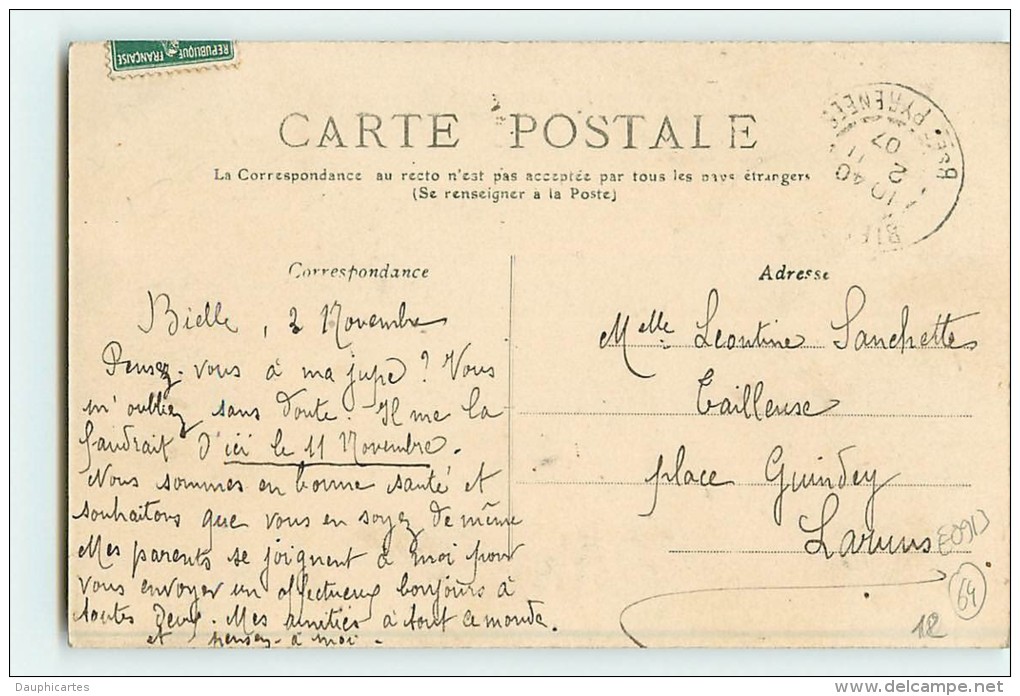 REPUBLIQUE FRANÇAISE
CARTE POSTALE
La Correspondance au recto n'est pas acceptée par tous les pays étrangers
(Se renseigner à la Poste)
BSES-PYRENEES
10 40
2
11
07
Correspondance
Adresse
Bielle, 2 Novembre
Pensez-vous à ma jupe? Vous
m'oubliez sans doute. Il me la
faudrait d'ici le 11 Novembre.
Nous sommes en bonne santé et
souhaitons que vous en soyez de même
Mes parents se joignent à moi pour
vous envoyer un affectueux bonjours à
toutes deux. Mes amitiés à tout ce monde.
et pensez à moi -
Melle Leontine Sanchette
Tailleuse
place Guindey
Laruns
E0913
64
12
Dauphicartes
www.delcampe.net